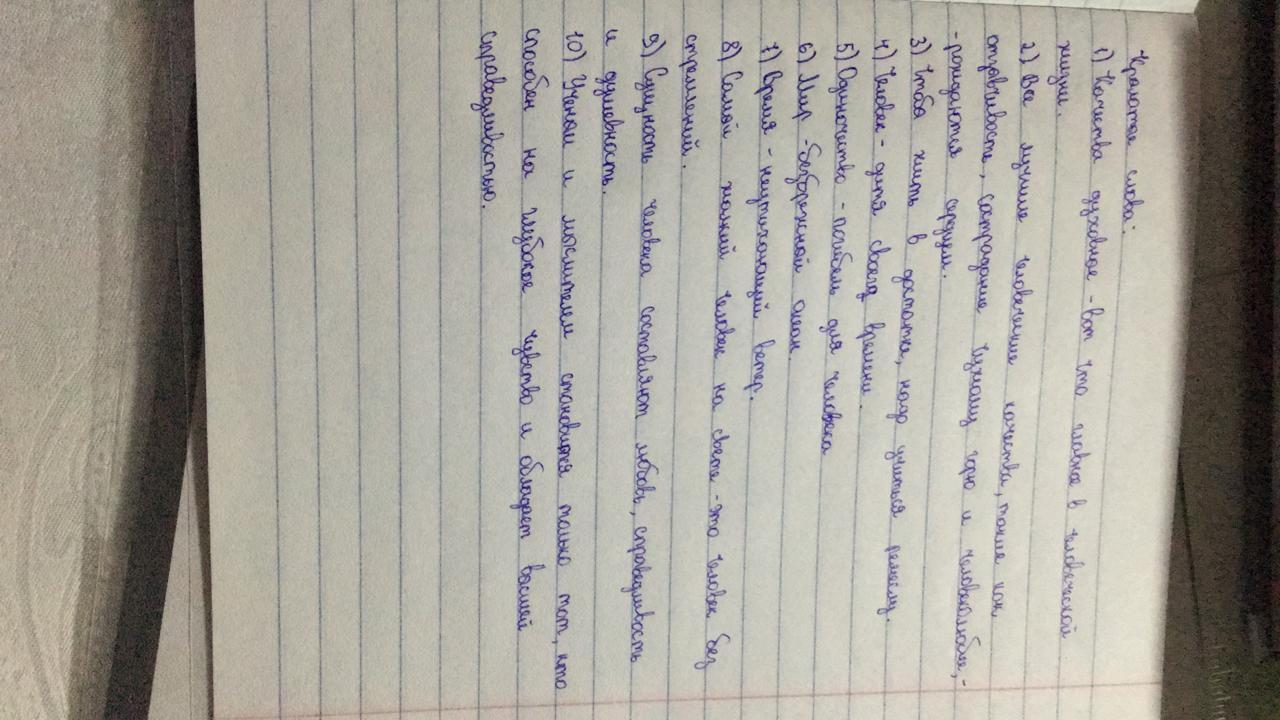 Крылатое слова:
1) Качества духовное - вот что главное в человеческой
жизни.
2) Все лучшие человечиские качества, такие как
отзовчивость, сострадание чужому горю и человеколюбие, -
- рождаются сердцем.
3) Чтоб жить в достатке, надо учиться ремеслу.
4) Человек - дитя своего времени.
5) Одиночество - погибель для человека
6) Мир - безбрежной океан
7) Время - неутихающий ветер.
8) Самой жалкий человек на свете - это человек без
стремлений.
9) Сущность человека составляют любовь, справедливость
и душевность.
10) Ученой и мыслителем становится только тот, кто
способен на глубокое чувство и обладает высшей
справедливостью.